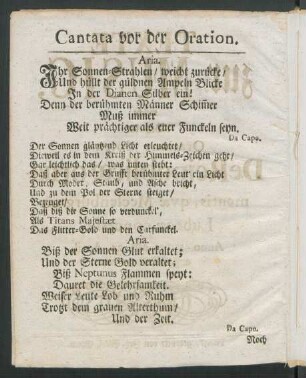 Cantata vor der Oration.
Aria.
Ihr Sonnen-Strahlen/ weicht zurücke/
Und hüllt der güldnen Ampeln Blicke
In der Dianen Silber ein!
Denn der berühmten Männer Schimmer
Muß immer
Weit prächtiger als euer Funckeln seyn.
Da Capo.
Der Sonnen gläntzend Licht erleuchtet/
Dieweil es in dem Kreiß der Himmels-Zeichen geht/
Gar leichtlich das/ was unten steht;
Daß aber aus der Grufft berühmter Leut ein Licht
Durch Moder, Staub, und Asche bricht,
Und zu dem Pol der Sterne steiget/
Bezeuget/
Daß diß die Sonne so verdunckel',
Als Titans Majestæt
Das Flitter-Gold und den Carfunckel.
Aria.
Biß der Sonnen Glut erkaltet;
Und der Sterne Gold veraltet;
Biß Neptunus Flammen speyt:
Dauret die Gelehrsamkeit.
Weiser Leute Lob und Ruhm
Trotzt dem grauen Alterthum/
Und der Zeit.
Da Capo.
Noch